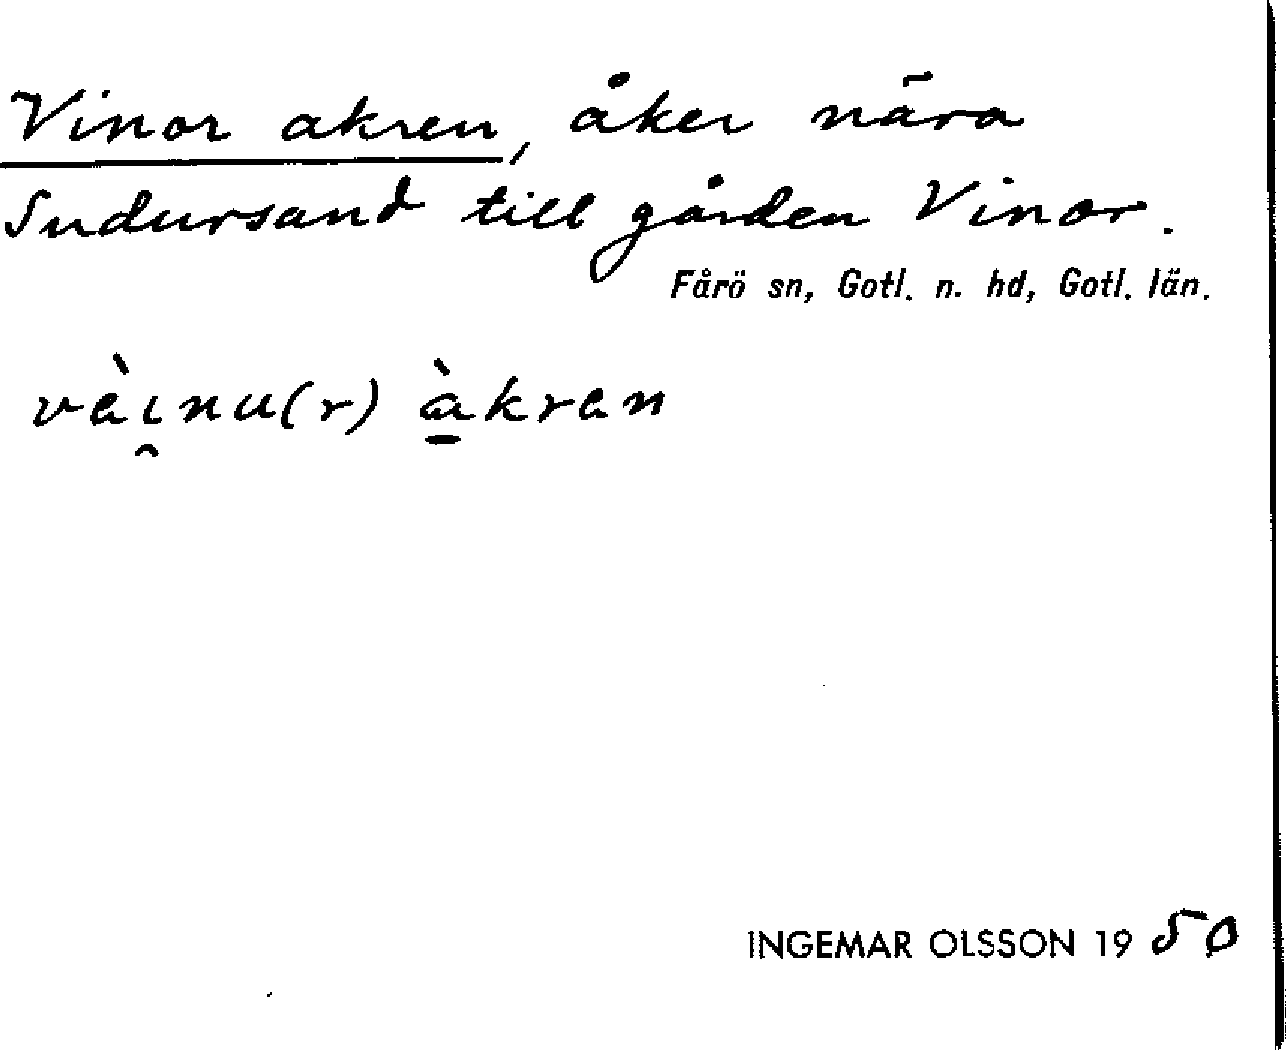 Vinor akren, åker nära
Sudursand till gården Vinor.
Fårö sn, Gotl. n. hd, Gotl. län.
vèi̯nu(r) à̱kren
INGEMAR OLSSON 1950